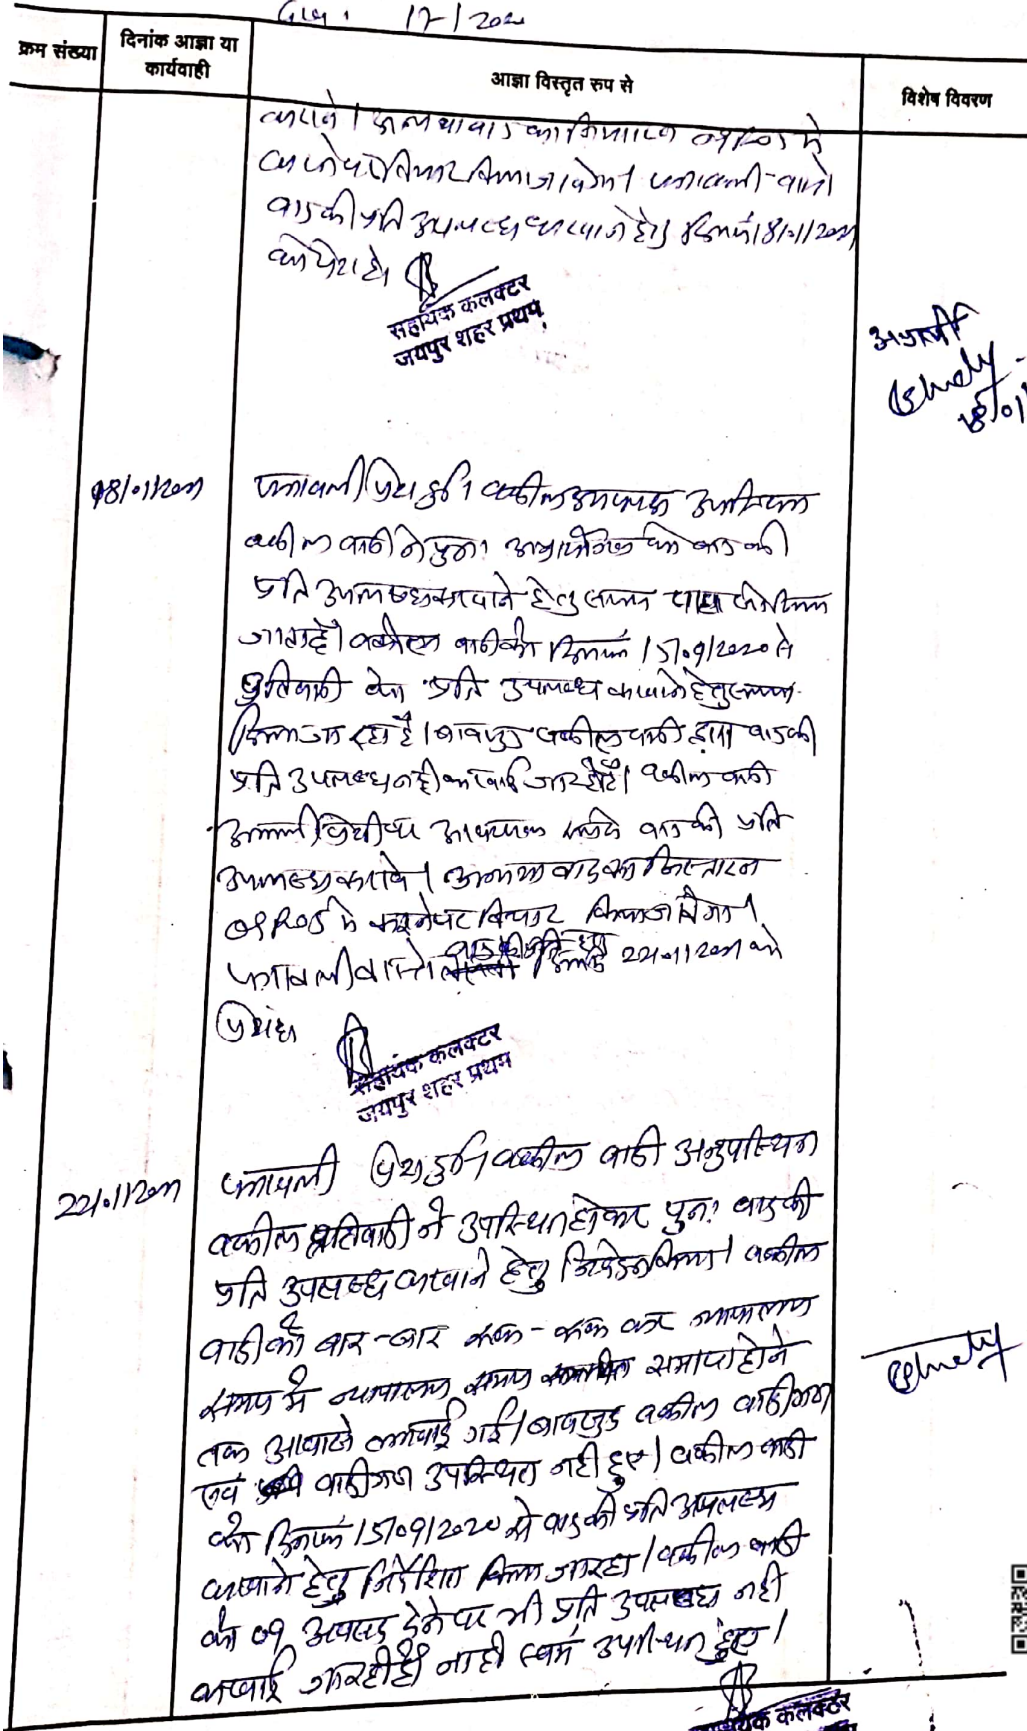 17/2020
क्रम संख्या
दिनांक आज्ञा या
कार्यवाही
आज्ञा विस्तृत रुप से
विशेष विवरण
करावे। अन्यथा वाद का निस्तारण 09R05 मे
करने पर विचार किया जावेगा। पत्रावली वास्ते
वाद की प्रति उपलब्ध करवाने हेतु दिनांक 18/1/2021
को पेश हो।
सहायक कलक्टर
जयपुर शहर प्रथम
18/01/2021
पत्रावली पेश हुई। वकील उभयपक्ष उपस्थित
वकील वादी ने पुनः वाद की
प्रति उपलब्ध करवाने हेतु समय चाहा
जाता है। वकील वादी को दिनांक 15/09/2020 से
प्रतिवादी को प्रति उपलब्ध करवाने हेतु समय
दिया जा रहा है। बावजुद वकील वादी द्वारा वाद की
प्रति उपलब्ध नही करवाई जा रही है। वकील वादी
आगामी पेशी पर आवश्यक रूप से वाद की प्रति
उपलब्ध करावे। अन्यथा वाद का निस्तारण
09R05 मे करने पर विचार किया जावेगा।
पत्रावली वास्ते वाद की प्रति हेतु दिनांक 22/01/2021 को
पेश हो।
सहायक कलक्टर
जयपुर शहर प्रथम
22/01/2021
पत्रावली पेश हुई। वकील वादी अनुपस्थित
वकील प्रतिवादी ने उपस्थित होकर पुनः वाद की
प्रति उपलब्ध करवाने हेतु निवेदन किया। वकील
वादी को बार-बार रूक-रूक कर न्यायालय
समय मे न्यायालय समय समाप्त होने
तक आवाजे लगवाई गई। बावजुद वकील वादीगण
एवं वादीगण उपस्थित नही हुए। वकील वादी
को दिनांक 15/09/2020 से वाद की प्रति उपलब्ध
करवाने हेतु निर्देशित किया जा रहा। वकील वादी
को 09 अवसर देने पर भी प्रति उपलब्ध नही
करवाई जा रही है ना ही स्वयं उपस्थित हुए।
सहायक कलक्टर